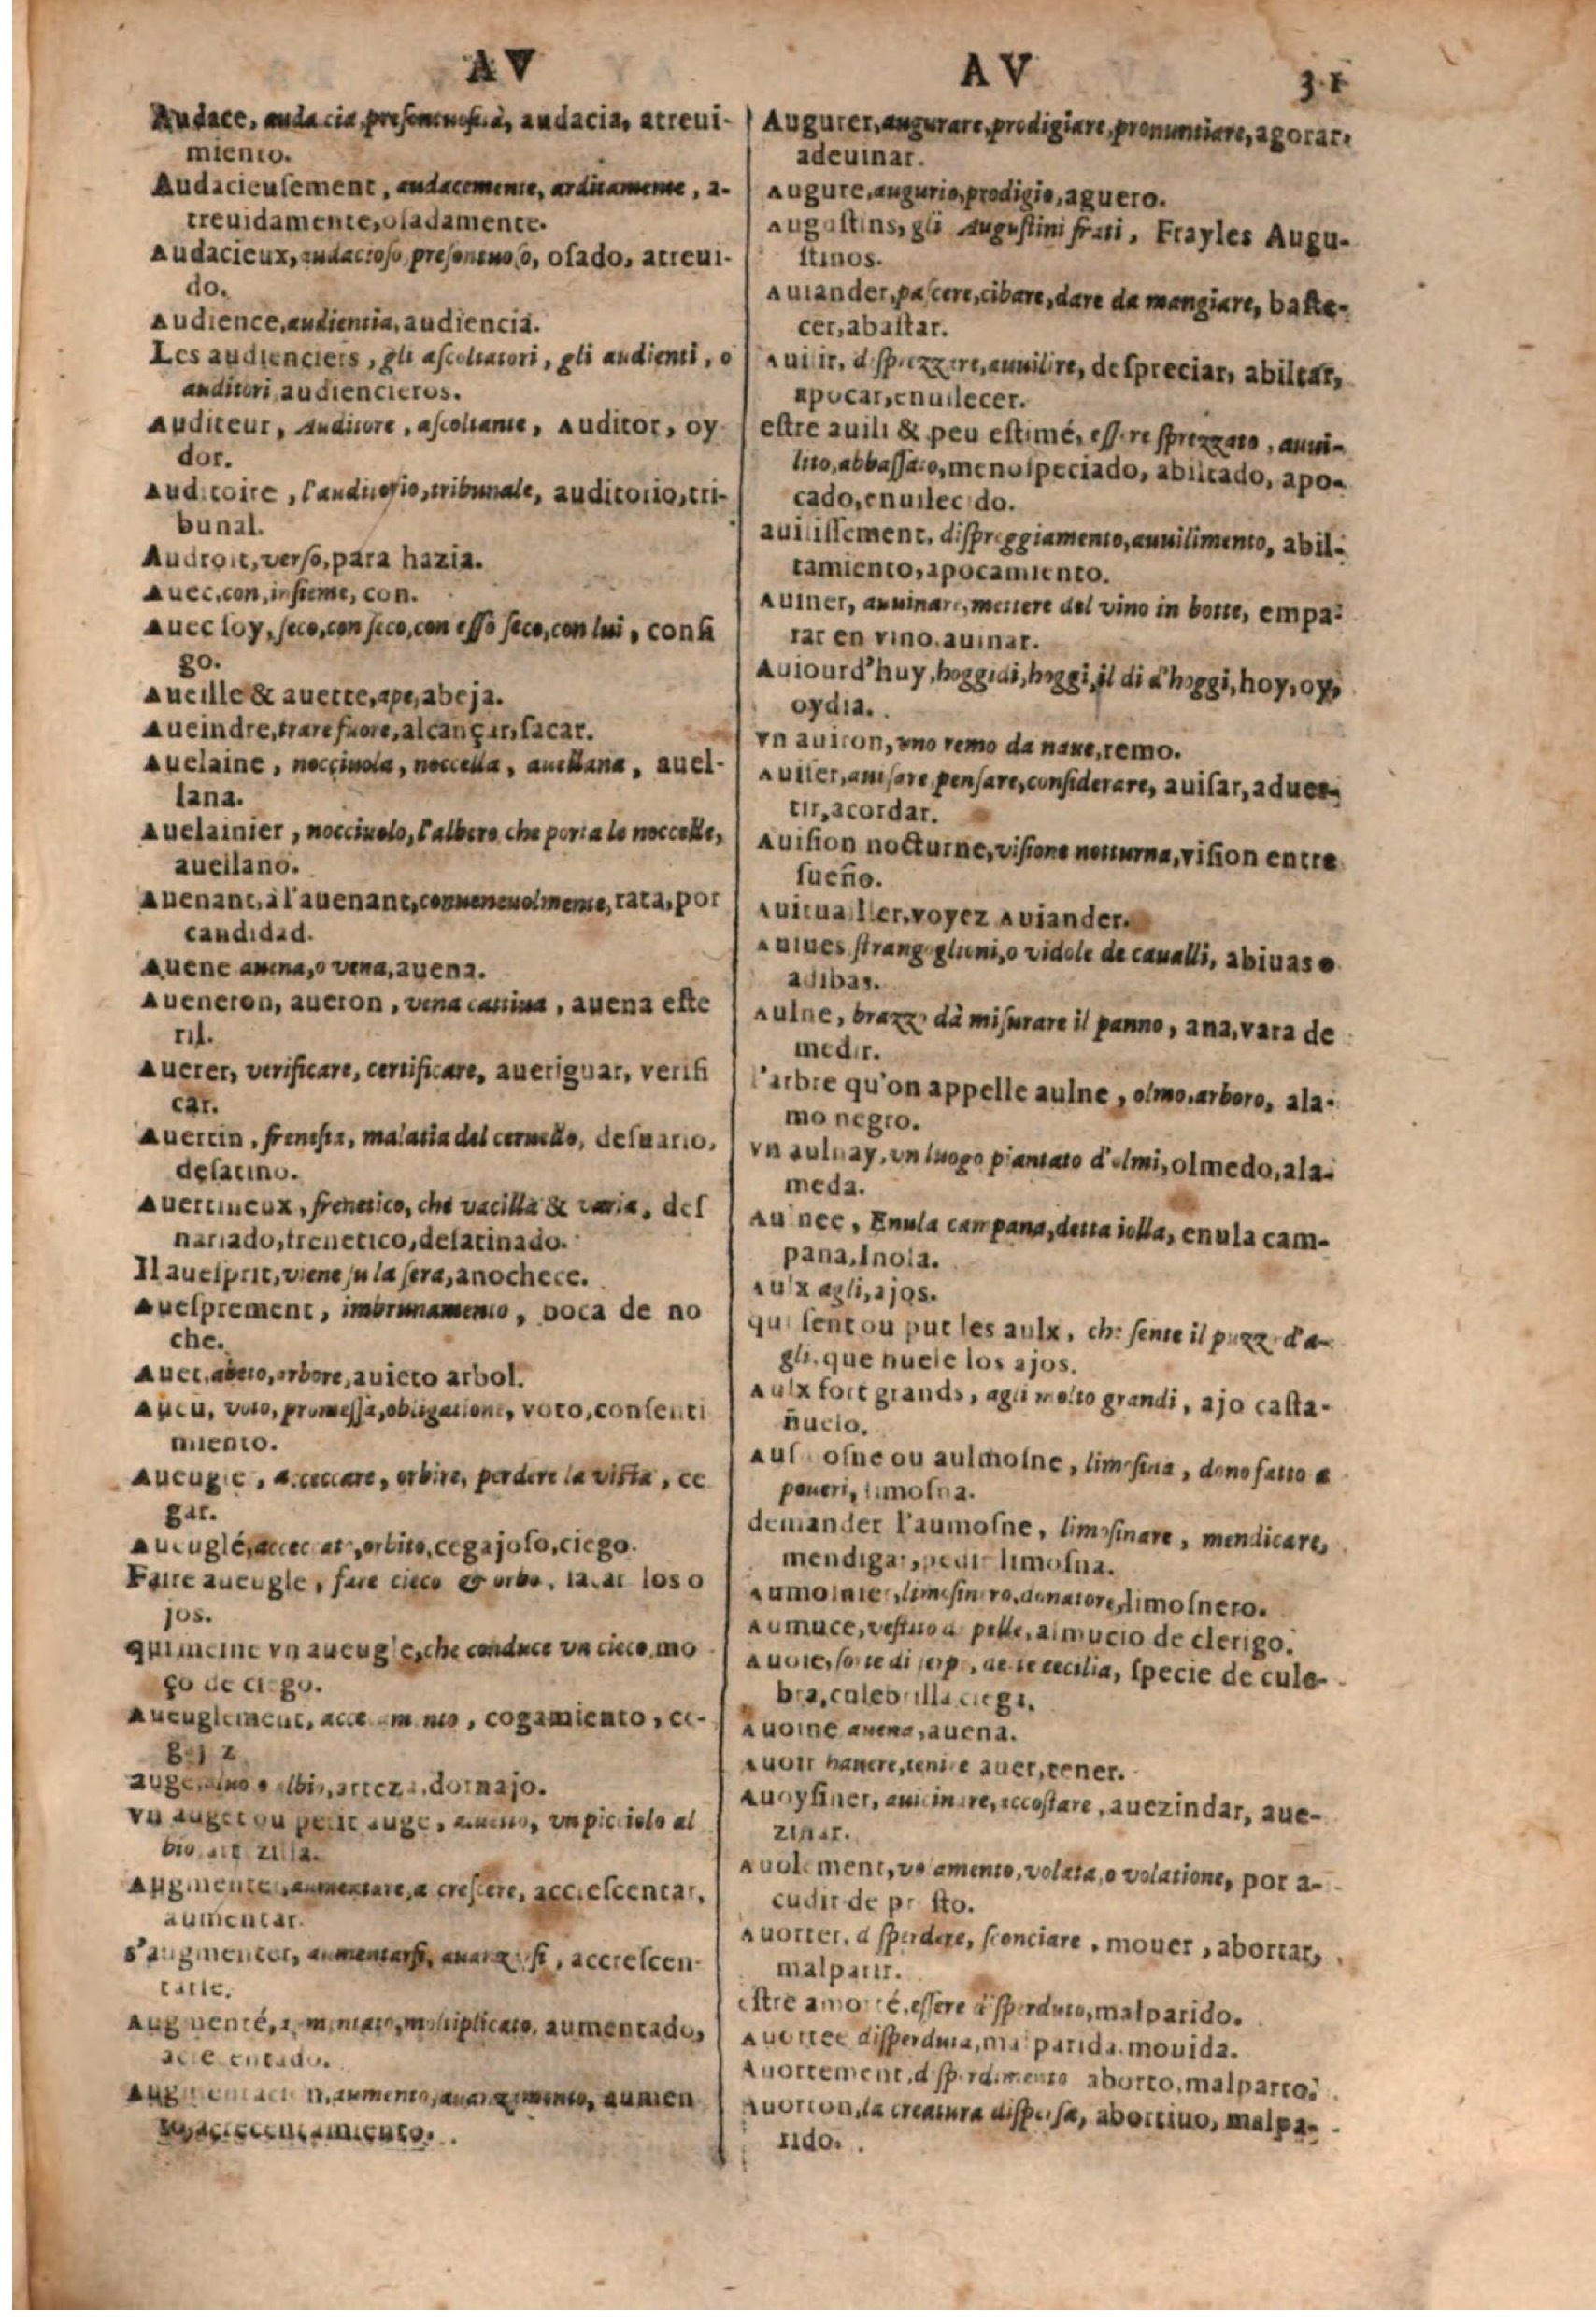 AV
Audace, audacia, presontuosità, audacia, atreui-
miento.
Audacieuſement, audacemente, arditamente, a-
treuidamente, oſadamente.
Audacieux, audacioſo, preſontuoſo, oſado, atreui-
do.
Audience, audientia, audiencia.
Les audienciers, gli aſcoltatori, gli audienti, o
auditori, audiencieros.
Auditeur, Auditore, aſcoltante, Auditor, oy
dor.
Auditoire, l'auditorio, tribunale, auditorio, tri-
bunal.
Audroit, verſo, para hazia.
Auec, con, inſieme, con.
Auec ſoy, ſeco, con ſeco, con eſſo ſeco, con lui, conſi
go.
Aueille & auette, ape, abeja.
Aueindre, trare fuore, alcançar, ſacar.
Auelaine, nocciuola, noccella, auellana, auel-
lana.
Auelainier, nocciuolo, l'albero che porta le noccelle,
auellano.
Auenant, à l'auenant, conueneuolmente, rata, por
candidad.
Auene auena, o vena, auena.
Aueneron, aueron, vena cattiua, auena eſte
ril.
Auerer, verificare, certificare, aueriguar, verifi
car.
Auertin, freneſia, malatia del ceruello, deſuario,
deſatino.
Auertineux, frenetico, che vacilla & varia, deſ
nariado, frenetico, deſatinado.
Il aueſprit, viene ſu la ſera, anochece.
Aueſprement, imbrunamento, boca de no
che.
Auet, abeto, arbore, auieto arbol.
Aueu, voto, promeſſa, obligatione, voto, conſenti
miento.
Aueugle, acceccare, orbire, perdere la viſta, ce
gar.
Aueuglé, acceccato, orbito, cegajoſo, ciego.
Faire aueugle, fare cieco & orbo, ſacar los o
jos.
qui meine vn aueugle, che conduce vn cieco, mo
ço de ciego.
Aueuglement, acceccamento, cogamiento, ce-
auge, albio, arteza, dornajo.
vn auget ou petit auge, vn picciolo al
bio, artezilla.
Augmenter, aumentare, accreſcere, accreſcentar,
aumentar.
s'augmenter, aumentarſi, auanzarſi, accreſcen-
tarſe.
Augmenté, aumentato, moltiplicato, aumentado,
acrecentado.
Augmentation, aumento, auanzamento, aumen
to, acrecentamiento.
AV 31
Augurer, augurare, prodigiare, pronuntiare, agorar,
adeuinar.
Augure, augurio, prodigio, aguero.
Auguſtins, gli Auguſtini frati, Frayles Augu-
ſtinos.
Auiander, paſcere, cibare, dare da mangiare, baſte-
cer, abaſtar.
Auilir, diſprezzare, auuilire, deſpreciar, abiltar,
apocar, enuilecer.
eſtre auili & peu eſtimé, eſſere ſprezzato, auui-
lito, abbaſſato, menoſpeciado, abiltado, apo-
cado, enuilecido.
auiliſſement, diſpreggiamento, auuilimento, abil-
tamiento, apocamiento.
Auiner, auuinare, mettere del vino in botte, empa-
rar en vino. auinar.
Auiourd'huy, hoggidi, hoggi, il di d'hoggi, hoy, oy,
oydia.
vn auiron, vno remo da naue, remo.
Auiſer, auiſare, penſare, conſiderare, auiſar, aduer-
tir, acordar.
Auiſion nocturne, viſione notturna, viſion entre
ſueño.
Auituailler, voyez Auiander.
Auiues ſtrangoglioni, o vidole de caualli, abiuas o
adibas.
Aulne, brazzo dà miſurare il panno, ana, vara de
medir.
l'arbre qu'on appelle aulne, olmo, arboro, ala-
mo negro.
vn aulnay, vn luogo piantato d'olmi, olmedo, ala-
meda.
Aulnee, Enula campana, detta iolla, enula cam-
pana, Inola.
Aulx agli, ajos.
qui ſent ou put les aulx, che ſente il puzzo d'a-
gli, que huele los ajos.
Aulx fort grands, agli molto grandi, ajo caſta-
ñuelo.
Aumoſne ou aulmoſne, limoſina, dono fatto a
poueri, limoſna.
demander l'aumoſne, limoſinare, mendicare,
mendigar, pedir limoſna.
Aumoſnier, limoſinero, donatore, limoſnero.
Aumuce, veſtito di pelle, almucio de clerigo.
Auoie, ſorte di ſerpe, cecilia, ſpecie de cule-
bra, culebrilla ciega.
Auoine auena, auena.
Auoir hauere, tenire auer, tener.
Auoyſiner, auicinare, accoſtare, auezindar, aue-
zinar.
Auolement, volamento, volata, o volatione, por a-
cudir de preſto.
Auorter, diſperdere, ſconciare, mouer, abortar,
malparir.
eſtre auorté, eſſere diſperduto, malparido.
Auortee diſperduta, malparida. mouida.
Auortement, diſperdimento aborto, malparto.
Auorton, la creatura diſperſa, abortiuo, malpa-
rido.